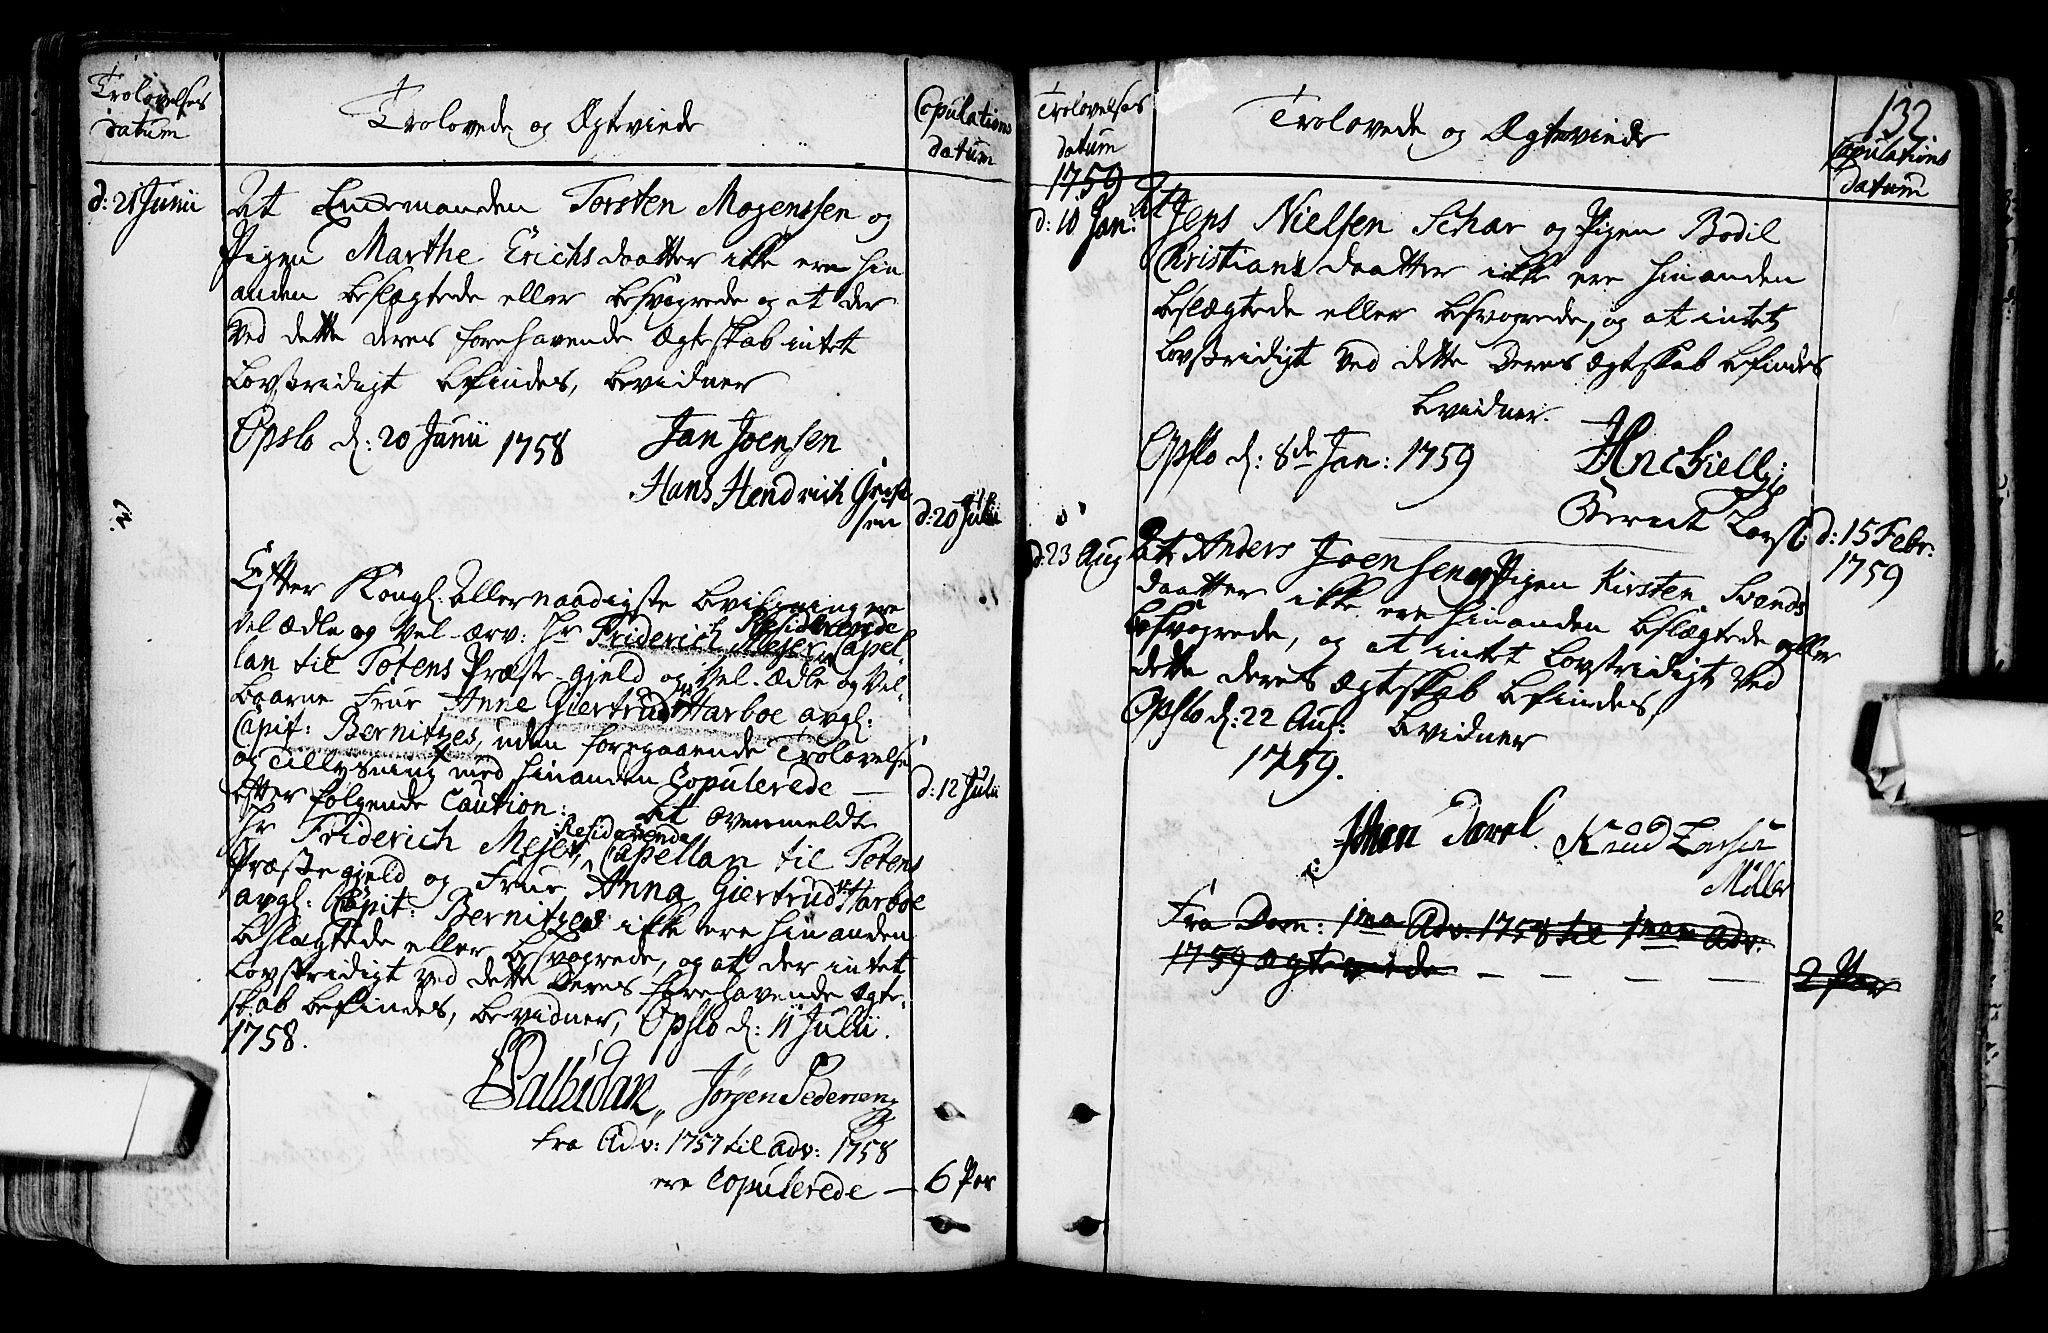 Trolovelses
datum
Trolovede og Ægteviede
Copulations
datum
d: 21 Junii
At Enckemanden Torsten Mogenssen og
Pigen Marthe Erichsdaatter ikke ere hin
anden beslægtede eller besvogrede og at der
ved dette deres forehavende Ægteskab intet
Lovstridigt befindes, bevidner
Opslo d: 20 Junii 1758 Jan Joensen
Hans Hendrich
sen
d: 20 Julii
Efter Kongl. Allernaadigste Bevilgning ere
Residerende
Vel Ædle og Vel-ærv: Hr Friderich Mejer Capel-
lan til Totens Præste-gjeld og Vel-Ædle og Vel-
baarne Frue Anne Giertrud Harboe avgl:
Capit: Bernitzes, uden foregaaende Trolovelse
og Tillysning med hinanden Copulerede —
d: 12 Julii
efter følgende Caution: At ovenmeldte
Residerende
Hr Friderich Mejer, Capellan til Totens
Præstegjeld og Frue Anna Giertrud Harboe
avgl: Capit: Bernitzes ikke ere hinanden
beslægtede eller besvogrede, og at der intet
Lovstridigt ved dette Deres forehavende Ægte-
skab befindes, bevidner, Opslo d: 11 Julii.
1758.
Balbidan Jørgen Pedersen
Fra Adv: 1757 til Adv: 1758
ere Copulerede — 6 Par
132.
Trolovelses
datum
Trolovede og Ægteviede
Copulations
datum
1759
d: 10 Jan:
At Jens Nielsen Schar og Pigen Bodil
Christiansdaatter ikke ere hinanden
beslægtede eller besvogrede, og at intet
Lovstridigt ved dette Deres Ægteskab befindes
bevidner.
Opslo d: 8de Jan: 1759
Bernt
d: 15 Febr:
1759
d: 23 Aug
At Anders Joensen og Pigen Kirsten Svends
daatter ikke ere hinanden beslægtede eller
besvogrede, og at intet Lovstridigt ved
dette deres Ægteskab befindes,
Opslo d: 22 Aug: bevidner
1759.
Johan Knud
Möller
Fra Dom: 1ma Adv: 1758 til 1mam Adv:
1759 Ægteviede — — — — 2 Par